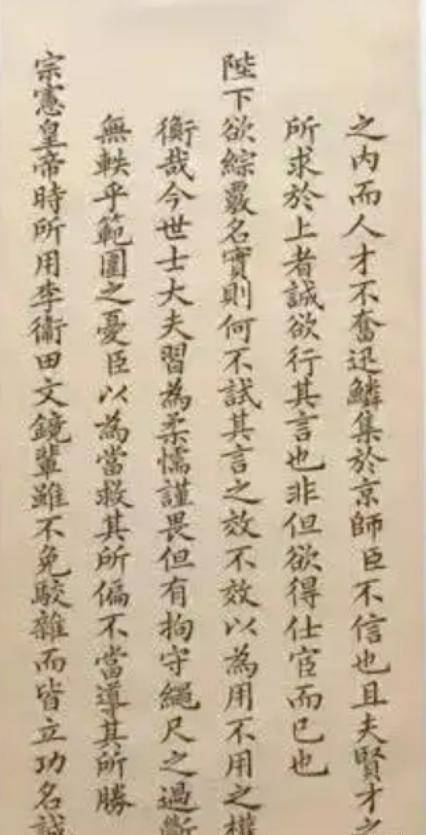 之內而人才不奮迅鱗集於京師臣不信也且夫賢才之
所求於上者誠欲行其言也非但欲得仕宦而已也
陛下欲綜覈名實則何不試其言之效不效以為用不用之權
衡哉今世士大夫習為柔懦謹畏但有拘守繩尺之過斷
無軼乎範圍之憂臣以為當救其所偏不當導其所勝
宗憲皇帝時所用李衞田文鏡輩雖不免駮雜而皆立功名誠